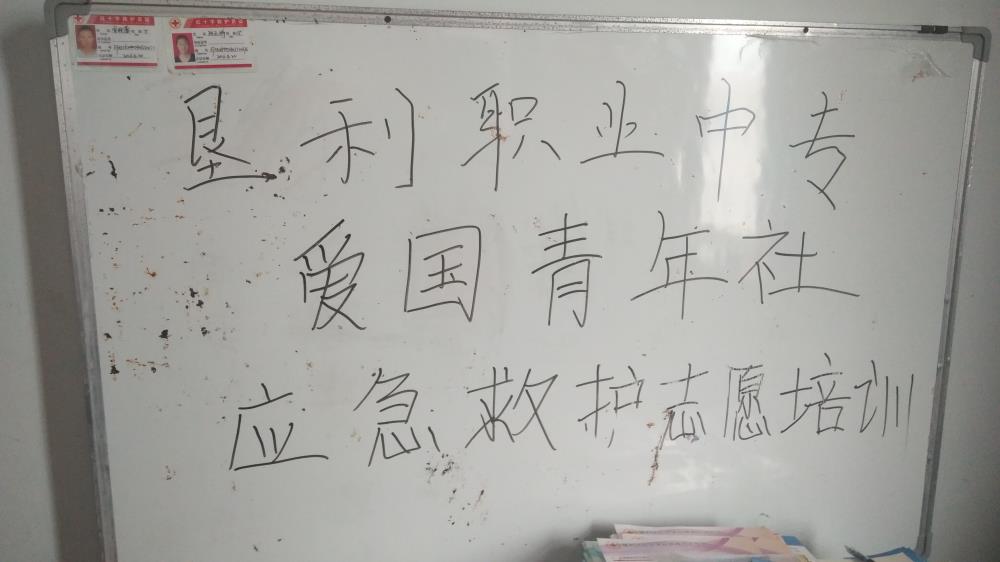 红十字救护员证
红十字救护员证
垦利职业中专
爱国青年社
应急救护志愿培训